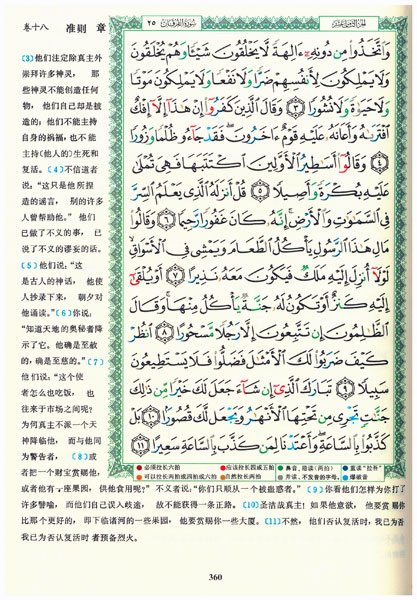 卷十八 准则 章
٢٥ سُورَةُ الْفُرْقَانِ
الجُزْءُ الثَّامِنَ عَشَرَ
وَٱتَّخَذُوا۟ مِن دُونِهِۦٓ ءَالِهَةً لَّا يَخْلُقُونَ شَيْـًٔا وَهُمْ يُخْلَقُونَ
وَلَا يَمْلِكُونَ لِأَنفُسِهِمْ ضَرًّا وَلَا نَفْعًا وَلَا يَمْلِكُونَ مَوْتًا
وَلَا حَيَوٰةً وَلَا نُشُورًا ٣ وَقَالَ ٱلَّذِينَ كَفَرُوٓا۟ إِنْ هَـٰذَآ إِلَّآ إِفْكٌ
ٱفْتَرَىٰهُ وَأَعَانَهُۥ عَلَيْهِ قَوْمٌ ءَاخَرُونَ فَقَدْ جَآءُو ظُلْمًا وَزُورًا
٤ وَقَالُوٓا۟ أَسَـٰطِيرُ ٱلْأَوَّلِينَ ٱكْتَتَبَهَا فَهِىَ تُمْلَىٰ
عَلَيْهِ بُكْرَةً وَأَصِيلًا ٥ قُلْ أَنزَلَهُ ٱلَّذِى يَعْلَمُ ٱلسِّرَّ
فِى ٱلسَّمَـٰوَٰتِ وَٱلْأَرْضِ إِنَّهُۥ كَانَ غَفُورًا رَّحِيمًا ٦ وَقَالُوا۟
مَالِ هَـٰذَا ٱلرَّسُولِ يَأْكُلُ ٱلطَّعَامَ وَيَمْشِى فِى ٱلْأَسْوَاقِ
لَوْلَآ أُنزِلَ إِلَيْهِ مَلَكٌ فَيَكُونَ مَعَهُۥ نَذِيرًا ٧ أَوْ يُلْقَىٰٓ
إِلَيْهِ كَنزٌ أَوْ تَكُونُ لَهُۥ جَنَّةٌ يَأْكُلُ مِنْهَا وَقَالَ
ٱلظَّـٰلِمُونَ إِن تَتَّبِعُونَ إِلَّا رَجُلًا مَّسْحُورًا ٨ ٱنظُرْ
كَيْفَ ضَرَبُوا۟ لَكَ ٱلْأَمْثَـٰلَ فَضَلُّوا۟ فَلَا يَسْتَطِيعُونَ
سَبِيلًا ٩ تَبَارَكَ ٱلَّذِىٓ إِن شَآءَ جَعَلَ لَكَ خَيْرًا مِّن ذَٰلِكَ
جَنَّـٰتٍ تَجْرِى مِن تَحْتِهَا ٱلْأَنْهَـٰرُ وَيَجْعَل لَّكَ قُصُورًۢا ١٠ بَلْ
كَذَّبُوا۟ بِٱلسَّاعَةِ وَأَعْتَدْنَا لِمَن كَذَّبَ بِٱلسَّاعَةِ سَعِيرًا ١١
(3)他们注定除真主外
崇拜许多神灵, 那
些神灵不能创造任何
物, 他们自己却是被
造的;他们不能主持
自身的祸福,也不能
主持(他人的)生死和
复活。(4)不信道者
说:“这只是他所捏
造的谎言, 别的许多
人曾帮助他。”他们
已做了不义的事, 已
说了不义的谬妄的话。
(5)他们说:“这
是古人的神话, 他使
人抄录下来, 朝夕对
他诵读。”(6)你说:
“知道天地的奥秘者降
示了它。他确是至赦
的,确是至慈的。”(7)
他们说:“这个使
者怎么也吃饭, 也
往来于市场之间呢?
为何真主不派一个天
神降临他, 而与他同
为警告者, (8)或
者把一个财宝赏赐他,
或者他有一座果园,供他食用呢?”不义者说:“你们只顺从一个被蛊惑者。”(9)你看他们怎样为你打了
许多譬喻,而他们自己误入歧途, 故不能获得一条正路。(10)圣洁哉真主!如果他意欲,他要赏赐你
比那个更好的,即下临诸河的一些果园,他要赏赐你一些大厦。(11)不然,他们否认复活时,我已为否
我已为否认复活时者预备烈火。
必须拉长六拍
应该拉长四或五拍
鼻音,隐读(两拍)
重读“拉吾”
可以拉长两拍或四拍或六拍
自然拉长两拍
并读,不发音的字母。
爆破音
360